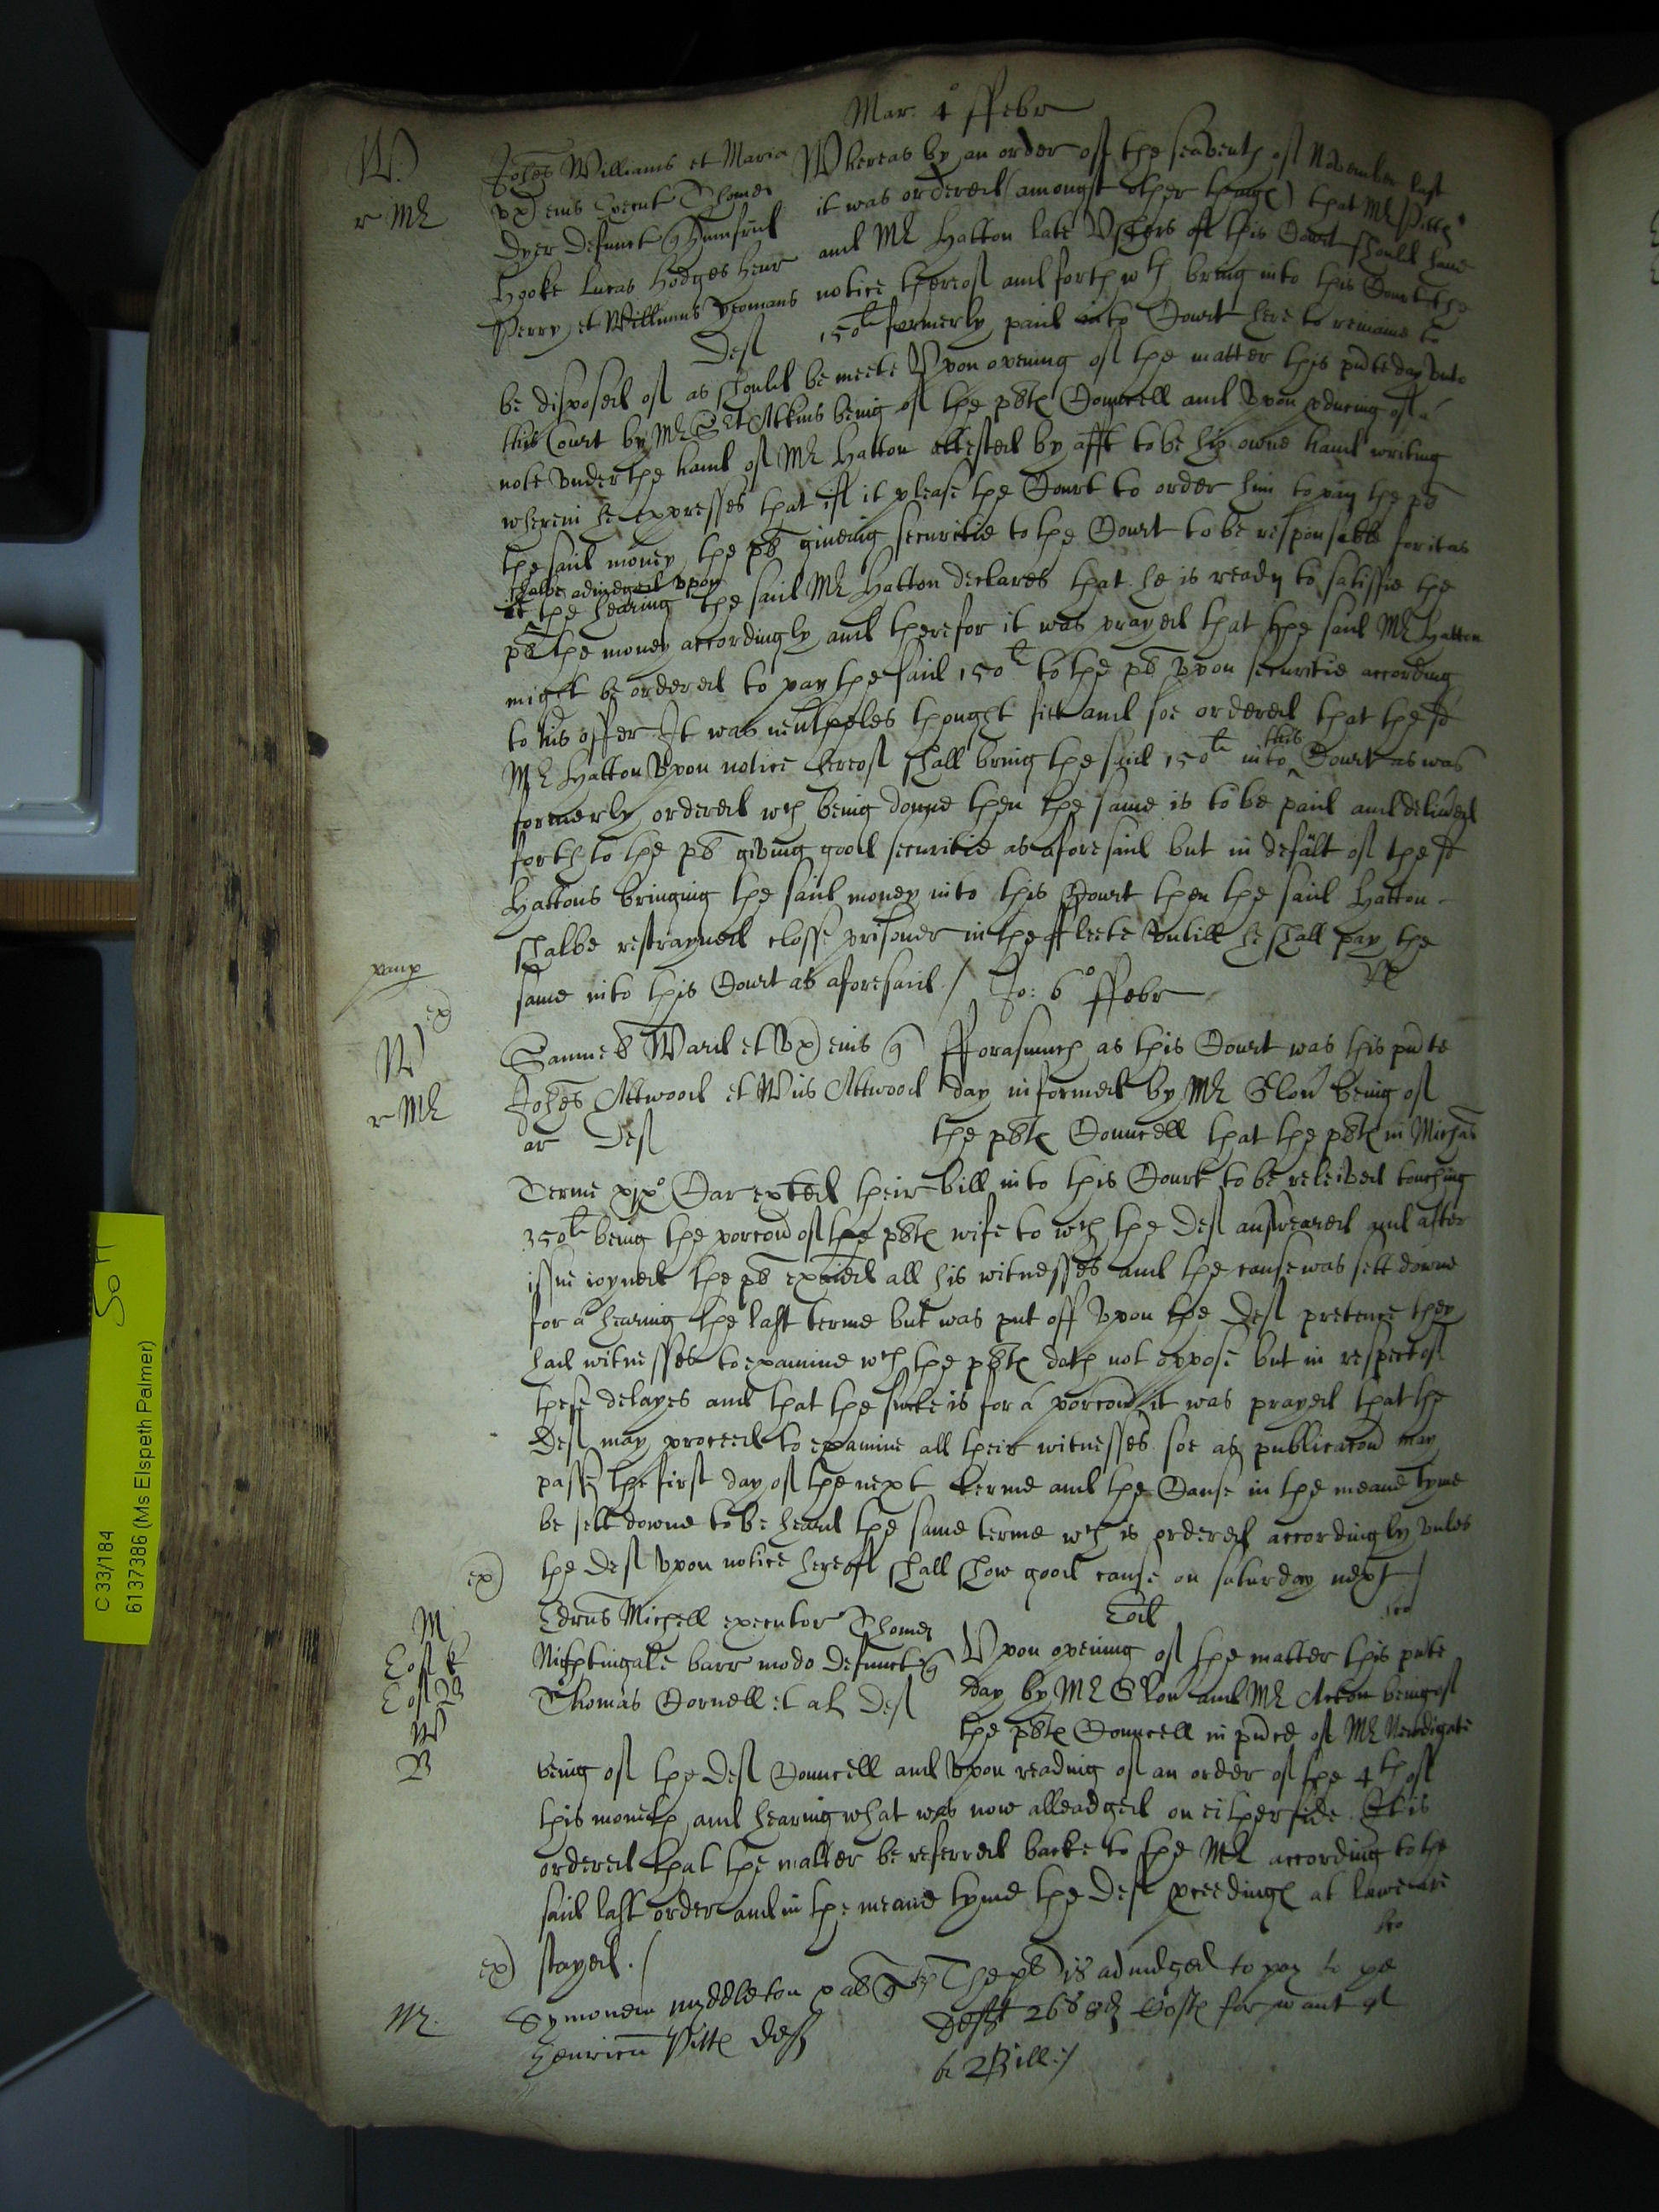 Mar: 4o ffebr
W
r Mr
Johes Williams et Maria
vx eius Execut Thome
Dyer defunct Humfrid
Hooke Lucas Hodges Henr
Perry et Willimus yeomans
Def
Whereas by an order of the seaventh of November last
it was ordered (amongst other things) that Mr
and Mr Hatton late Vshers of this Court should have
notice thereof and forth wth bring into this Court the
150l formerly paid into Court here to remaine to
be disposed of as should be meete Vpon opening of the matter this pnte day vnto
this Court by Mr Atkins being of the plts Councell and Vpon pducing of a
note vnder the hand of Mr Hatton attested by afft to be his owne hand writing
wherein he expresses that if it please the Court to order him to pay the pl
the said money the pl giveing securitie to the Court to be responsable for it as
shalbe adiudged vpon
the hearing the said Mr Hatton declares that he is ready to satisfie the
pl the money accordingly and therefor it was prayed that the said Mr Hatton
might be ordered to pay the said 150l to the pl vpon securitie according
to his offer It was neutheles thought fitt and soe ordered that the sd
Mr Hatton Vpon notice hereof shall bring the said 150l into this Court as was
formerly ordered wch being donne then the same is to be paid and deliued
forth to the pl giving good securitie as aforesaid but in default of the sd
Hattons bringing the said money into this Court then the said Hatton
shalbe restrayned closse prisoner in the ffleete vntill he shall pay the
same into this Court as aforesaid / Jo: 6o ffebr
ex)
W
r Mr
Samuel Ward et Vx eius
Johes Attwood et Wus Attwood
ar Def
fforasmuch as this Court was this pnte
day informed by Mr being of
the plts Councell that the plts in Michas
Terme xixo Car exted their bill into this Court to be releived touching
350l being the porcon of the plts wife to wch the Def answeared and after
issue ioyned the pl exaied all his witnesses and the cause was sett downe
for a hearing the last terme but was put off vpon the Def pretence they
had witnesses to examine wch the plts doth not oppose but in respect of
these delayes and that the suite is for a porcon it was prayed that the
Def may proceed to examine all their witnesses soe as publicacon may
passe the first day of the next terme and the Cause in the meane tyme
be sett downe to be heard the same terme wch is ordered accordingly vnles
the Def vpon notice hereof shall show good cause on saturday next /
ex)
M
W
B
Edrus Michell executor Thome
Nightingale barr modo defunct
Thomas Cornell et al Def
Eod
Vpon opening of the matter this pnte
day by Mr and Mr Acton being of
the plts Councell in pnce of Mr Newdigate
being of the Def Councell and Vpon reading of an order of the 4th of
this moneth and hearing what was now alleadged on either side It is
ordered that the matter be referred backe to the Mr according to the
said last order and in the meane tyme the Def pceedings at lawe are
stayed . /
ex)
Mr.
Symonem myddleton
henricu Pitts deft
The pl is adiudged to pay to ye
Deft 26s 8d Costs for want of
a Bill:/
C 33/184
6137386 (Ms Elspeth Palmer)